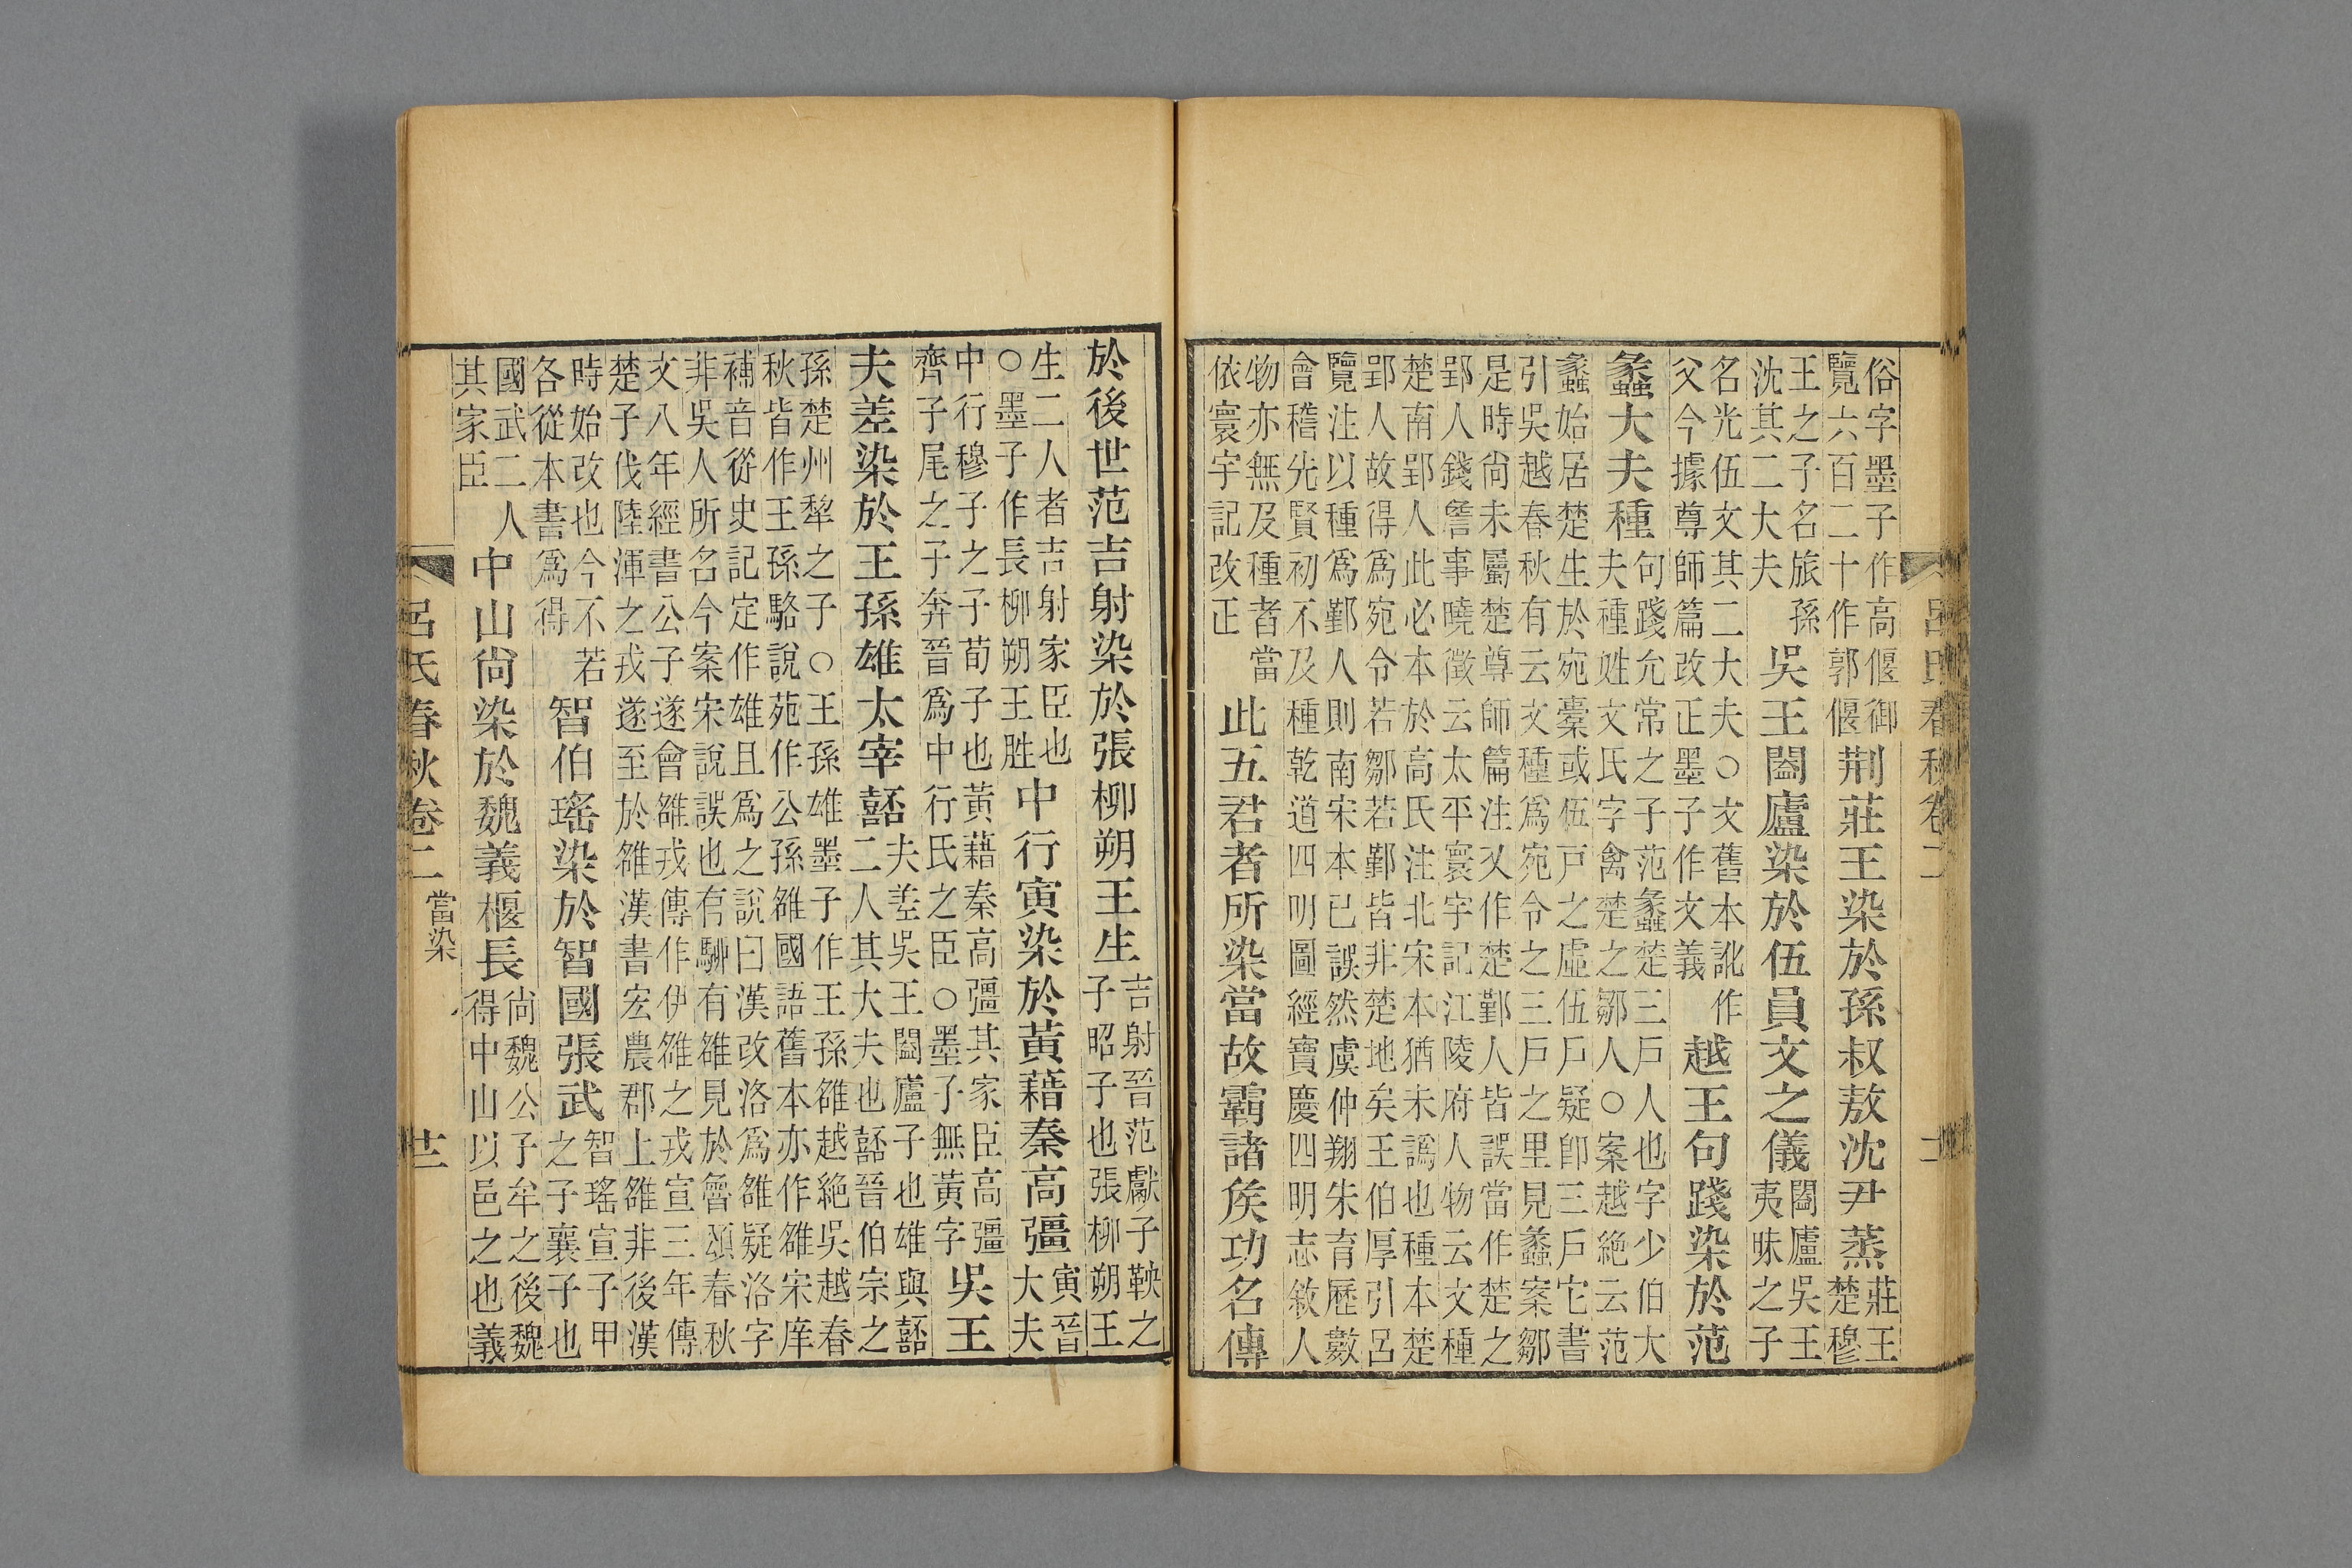 呂氏春秋卷二
俗字墨子作高偃御
覽六百二十作郭偃
荆莊王染於孫叔敖沈尹蒸
莊王
楚穆
王之子名旅孫
沈其二大夫
吳王闔廬染於伍員文之儀
闔廬吳王
夷昧之子
名光伍文其二大夫○文舊本訛作
父今據尊師篇改正墨子作文義
越王句踐染於范
蠡大夫種
句踐允常之子范蠡楚三戶人也字少伯大
夫種姓文氏字禽楚之鄒人○案越絕云范
蠡始居楚生於宛橐或伍戸之虛伍戸疑卽三戸它書
引吳越春秋有云文種爲宛令之三戸之里見蠡案鄒
是時尙未屬楚尊師篇注又作楚鄞人皆誤當作楚之
郢人錢詹事曉徵云太平寰宇記江陵府人物云文種
楚南郢人此必本於高氏注北宋本猶未譌也種本楚
郢人故得爲宛令若鄒若鄞皆非楚地矣王伯厚引呂
覽注以種爲鄞人則南宋本已誤然虞仲翔朱育歷數
會稽先賢初不及種乾道四明圖經寶慶四明志敘人
物亦無及種者當
依寰宇記改正
此五君者所染當故霸諸矦功名傳
於後世范吉射染於張柳朔王生
吉射晉范獻子鞅之
子昭子也張柳朔王
生二人者吉射家臣也
○墨子作長柳朔王胜
中行寅染於黃藉秦高彊
寅晉
大夫
中行穆子之子荀子也黃藉秦高彊其家臣高彊
齊子尾之子奔晉爲中行氏之臣○墨子無黃字
吳王
夫差染於王孫雄太宰嚭
夫差吳王闔廬子也雄與嚭
二人其大夫也嚭晉伯宗之
孫楚州犂之子○王孫雄墨子作王孫雒越絕吳越春
秋皆作王孫駱說苑作公孫雒國語舊本亦作雒宋庠
補音從史記定作雄且爲之說曰漢改洛爲雒疑洛字
非吳人所名今案宋說誤也有駵有雒見於魯頌春秋
文八年經書公子遂會雒戎傳作伊雒之戎宣三年傳
楚子伐陸渾之戎遂至於雒漢書宏農郡上雒非後漢
時始改也今不若
各從本書爲得
智伯瑤染於智國張武
智瑤宣子甲
之子襄子也
國武二人
其家臣
中山尙染於魏義椻長
尙魏公子牟之後魏
得中山以邑之也義
呂氏春秋卷二 當染